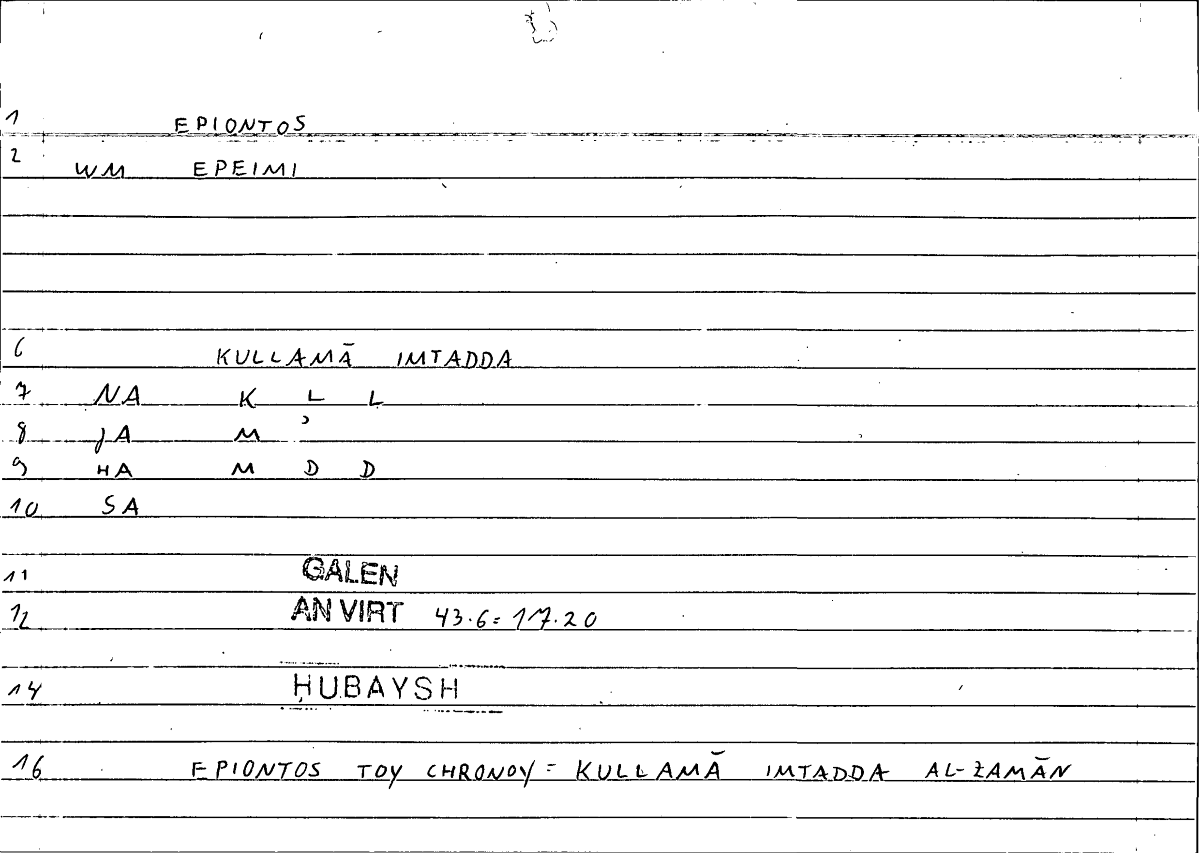 1 EPIONTOS
2 WM EPEIMI
6 KULLAMĀ IMTADDA
7 NA K L L
8 JA M ʾ
9 HA M D D
10 SA
11 GALEN
12 AN VIRT 43.6 = 117.20
14 ḤUBAYSH
16 EPIONTOS TOY CHRONOY = KULLAMĀ IMTADDA AL-ZAMĀN